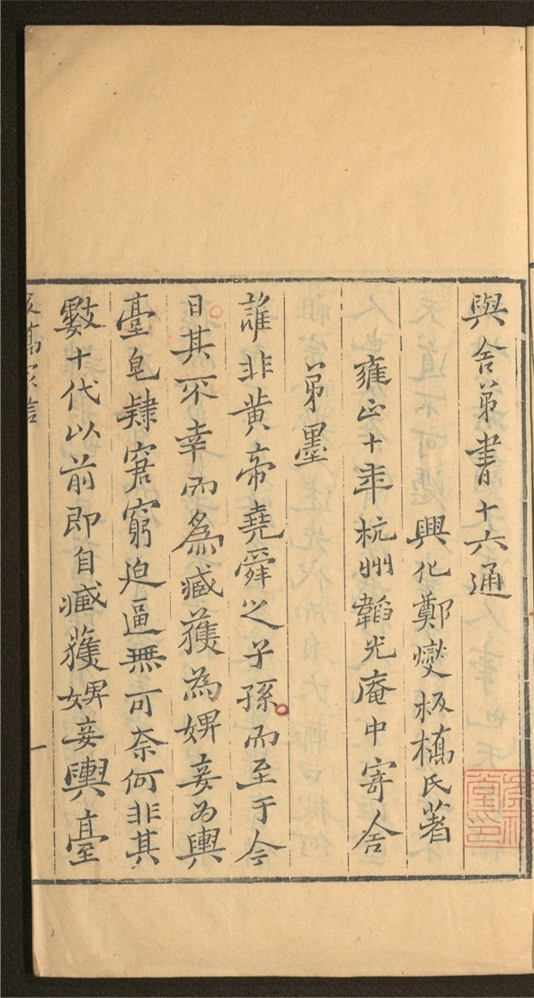 與舍弟書十六通
興化鄭燮板橋氏著
雍正十年杭州韜光庵中寄舍
弟墨
誰非黃帝堯舜之子孫而至于今
日其不幸而爲臧獲為婢妾为輿
臺皂隸窘窮迫逼無可奈何非其
數十代以前即自臧獲婢妾輿臺
一